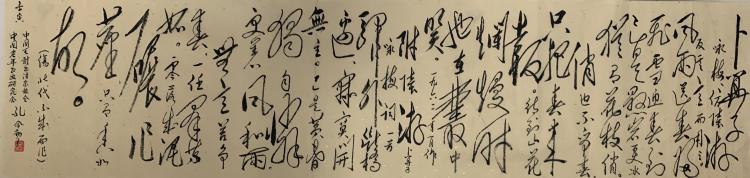 卜算子
咏梅
反其意而用之
风雨送春归
飞雪迎春到
已是悬崖百丈冰
犹有花枝俏
俏也不争春
只把春来报
待到山花
烂漫时
她在丛中
笑 一九六一年十二月作
附陆游
咏梅词一首 卜算子
驿外断桥
边 寂寞开
無主 已是黄昏
獨自愁
更著风和雨
無意苦争
春 一任群芳
妒 零落成泥
碾作
塵 只有香如
故。
壬寅